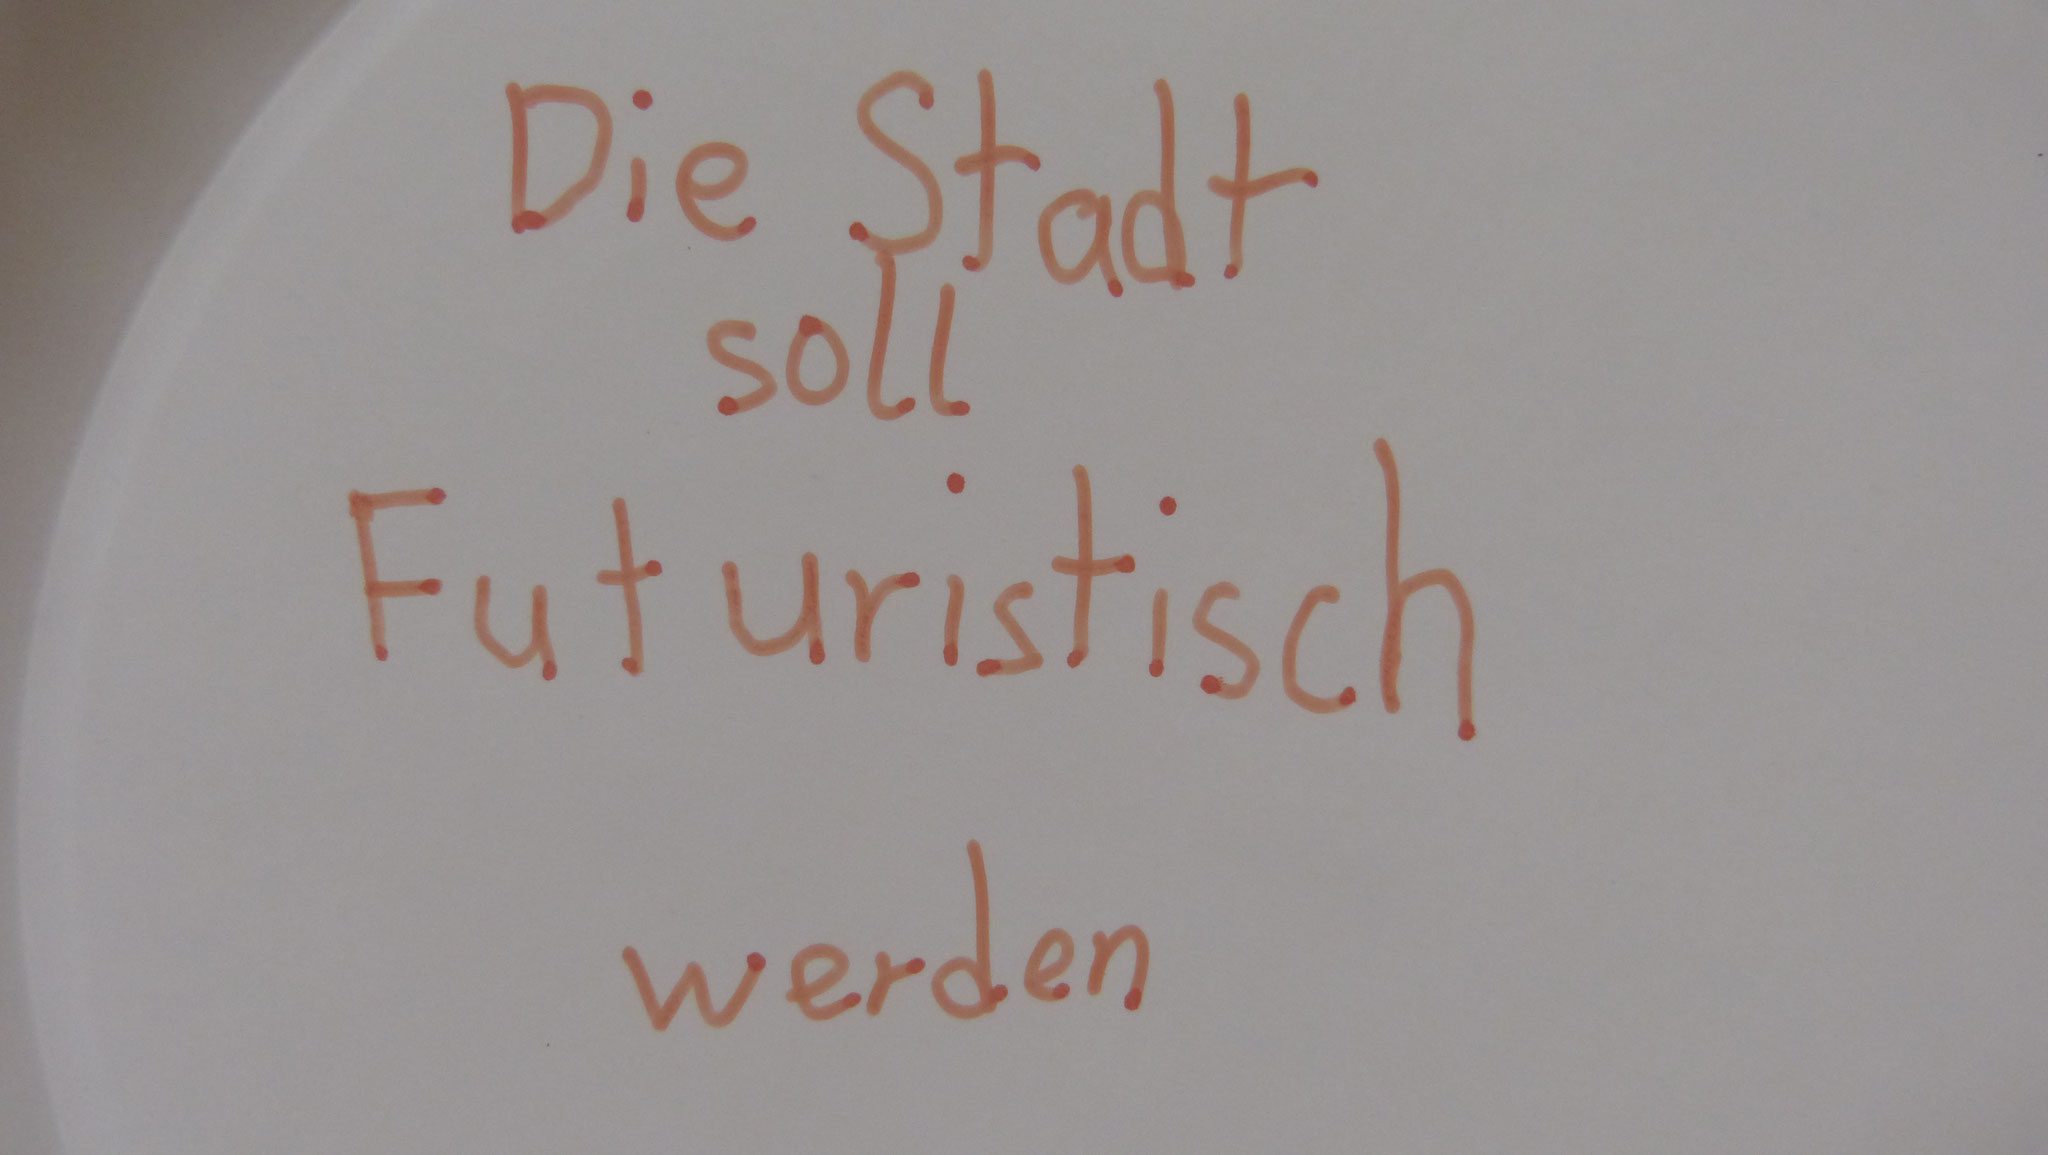 Die Stadt
soll
Futuristisch
werden